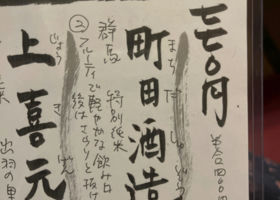 七七〇円
半合四〇〇円
町田酒造
まちだしゅぞう
群馬
特別純米
②フルーティで軽やかな飲み口
後はさらりと抜け
上喜元
じょうきげん
出羽の里